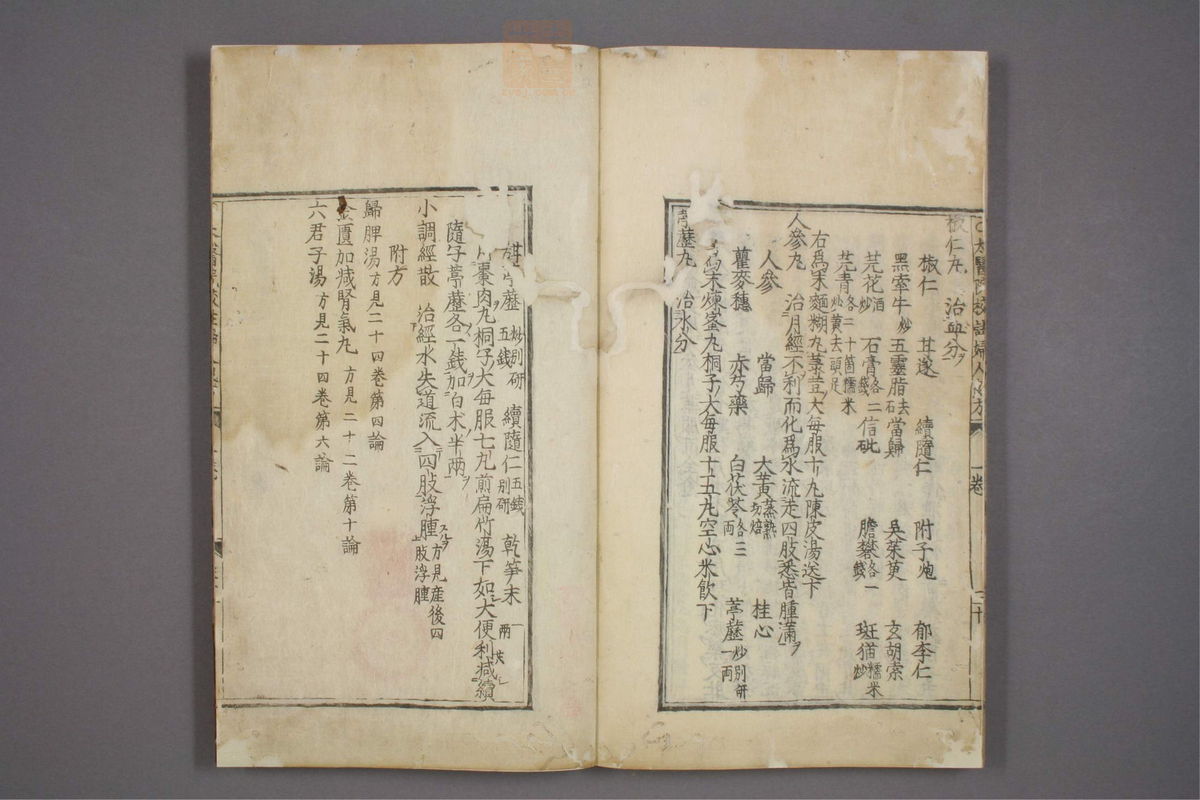 太醫院校註婦人良方 一卷 二十
椒仁丸 治血分
椒仁 甘遂 續隨仁 附子炮 郁李仁
黑牽牛炒 五靈脂去石 當歸 吳茱萸 玄胡索
芫花酒炒 石膏各二錢 信砒 膽礬各一錢 斑猫糯米炒
芫青各三十箇糯米炒黄去頭足
右爲末麵糊丸菉豆大每服十丸陳皮湯送下
人參丸 治月經不利而化爲水流走四肢悉皆腫滿
人參 當歸 大黄蒸熟切焙 桂心
瞿麥穗 赤芍藥 白茯苓各三兩 葶藶炒別研一兩
爲末煉蜜丸桐子大每服十五丸空心米飲下
葶藶丸 治水分
葶藶炒別研五錢 續隨仁五錢別研 乾笋末一兩
棗肉丸桐子大每服七丸煎扁竹湯下如大便利減續
隨子葶藶各一錢加白朮半兩
小調經散 治經水失道流入四肢浮腫方見産後四肢浮腫
附方
歸脾湯方見二十四卷第四論
金匱加減腎氣丸方見二十二卷第十論
六君子湯方見二十四卷第六論